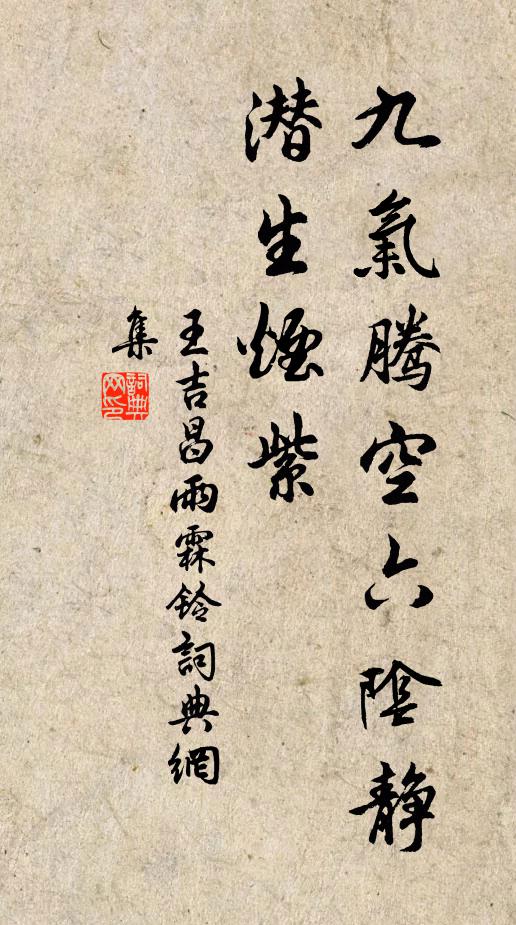 九氣騰空六陰静
潜生煙紫
王吉昌雨霖鈴詞典網
集
詞典
网印